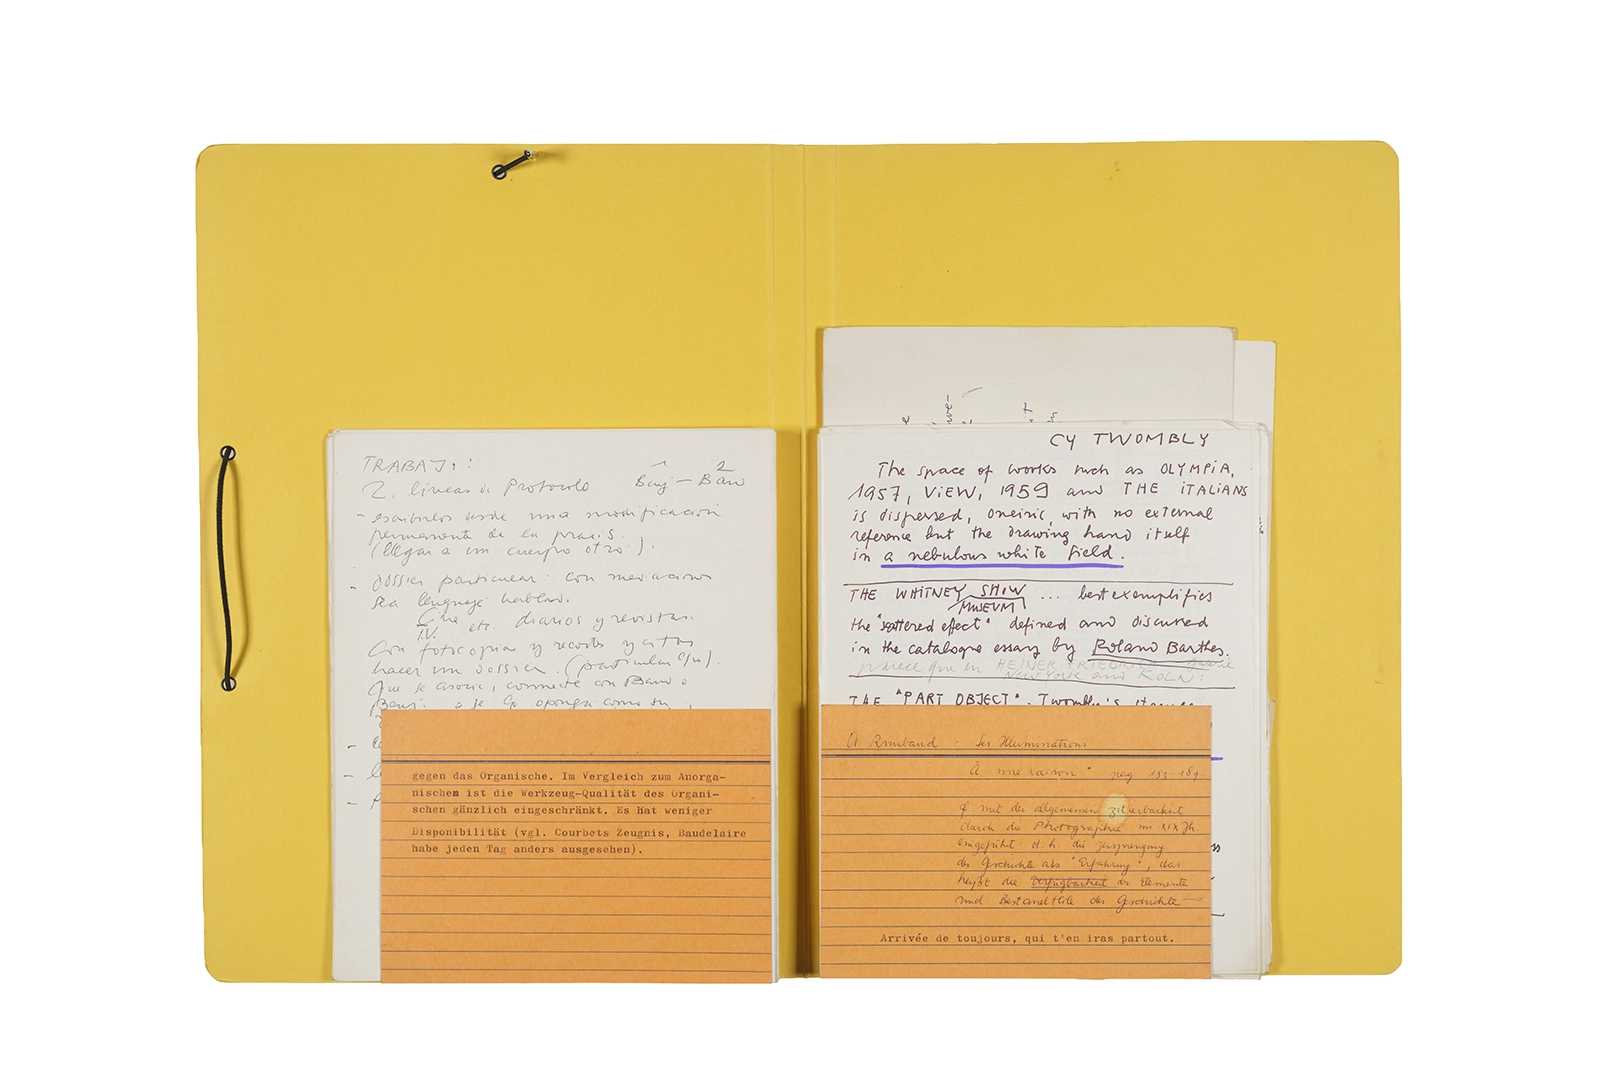 TRABAJ.:
2. lineas de Protocolo Benj — Baud
1 2
- escribirlos desde una modificación
permanente de la praxis.
(llegar a un cuerpo otro).
- dossier particular: con
sea lenguaje hablado.
Cine
T.V. etc. diarios y revistas.
Con fotocopias y recortes y citas
hacer un dossier. (particular c/u).
que se asocie, connecte con Baud o
Benj. o se le oponga como
gegen das Organische. Im Vergleich zum Anorga-
nischen ist die Werkzeug-Qualität des Organi-
schen gänzlich eingeschränkt. Es hat weniger
Disponibilität (vgl. Courbets Zeugnis, Baudelaire
habe jeden Tag anders ausgesehen).
CY TWOMBLY
The space of works such as OLYMPIA,
1957, VIEW, 1959 and THE ITALIANS
is dispersed, oneiric, with no external
reference but the drawing hand itself
in a nebulous white field.
THE WHITNEY SHOW ... best exemplifies
MUSEUM
the "scattered effect" defined and discussed
in the catalogue essay by Roland Barthes.
parece que en HEINER FRIEDRICH
NEW YORK and KÖLN:
THE "PART OBJECT". Twombly's
A Rimbaud - Les Illuminations
"À une raison" pag 183-184.
mit der allgemeinen Zitierbarkeit
durch die Photographie im XIX Jh.
eingeführt: d.h. die Zersprengung
der Geschichte als "Erfahrung", das
heißt die Verfügbarkeit der Elemente
und Bestandteile der Geschichte
Arrivée de toujours, qui t'en iras partout.